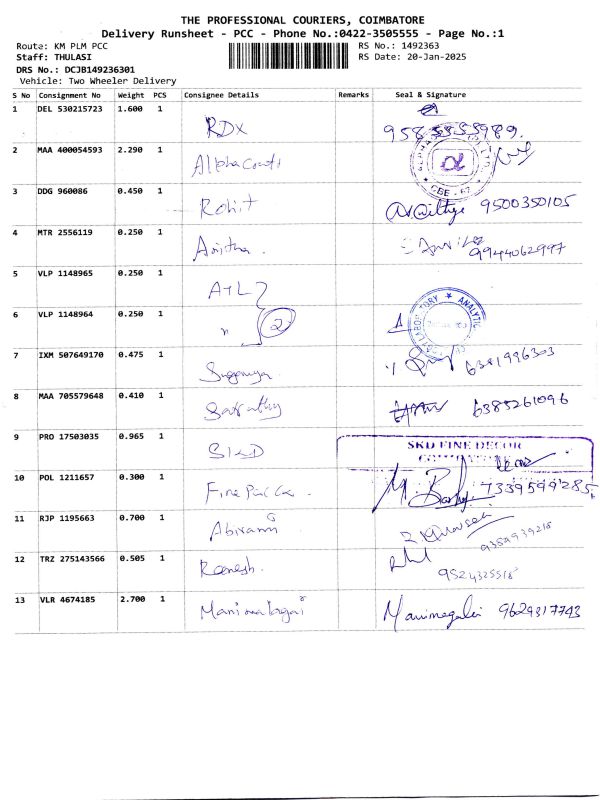 THE PROFESSIONAL COURIERS, COIMBATORE
Delivery Runsheet - PCC - Phone No.:0422-3505555 - Page No.:1
Route: KM PLM PCC
RS No.: 1492363
Staff: THULASI
RS Date: 20-Jan-2025
DRS No.: DCJB149236301
Vehicle: Two Wheeler Delivery
S No Consignment No Weight PCS Consignee Details Remarks Seal & Signature
1 DEL 530215723 1.600 1
RDX
2 MAA 400054593 2.290 1
3 DDG 960086 0.450 1
Rohit 9500350105
4 MTR 2556119 0.250 1
Anitha. 9944062997
5 VLP 1148965 0.250 1
ATL
6 VLP 1148964 0.250 1
" 2 ANALYTIC
7 IXM 507649170 0.475 1
6381996303
8 MAA 705579648 0.410 1
6385261096
9 PRO 17503035 0.965 1
SKD SKD FINE DECOR
10 POL 1211657 0.300 1
7339599285
11 RJP 1195663 0.700 1
Abirami
12 TRZ 275143566 0.505 1
13 VLR 4674185 2.700 1
Manimegalai 9629317743